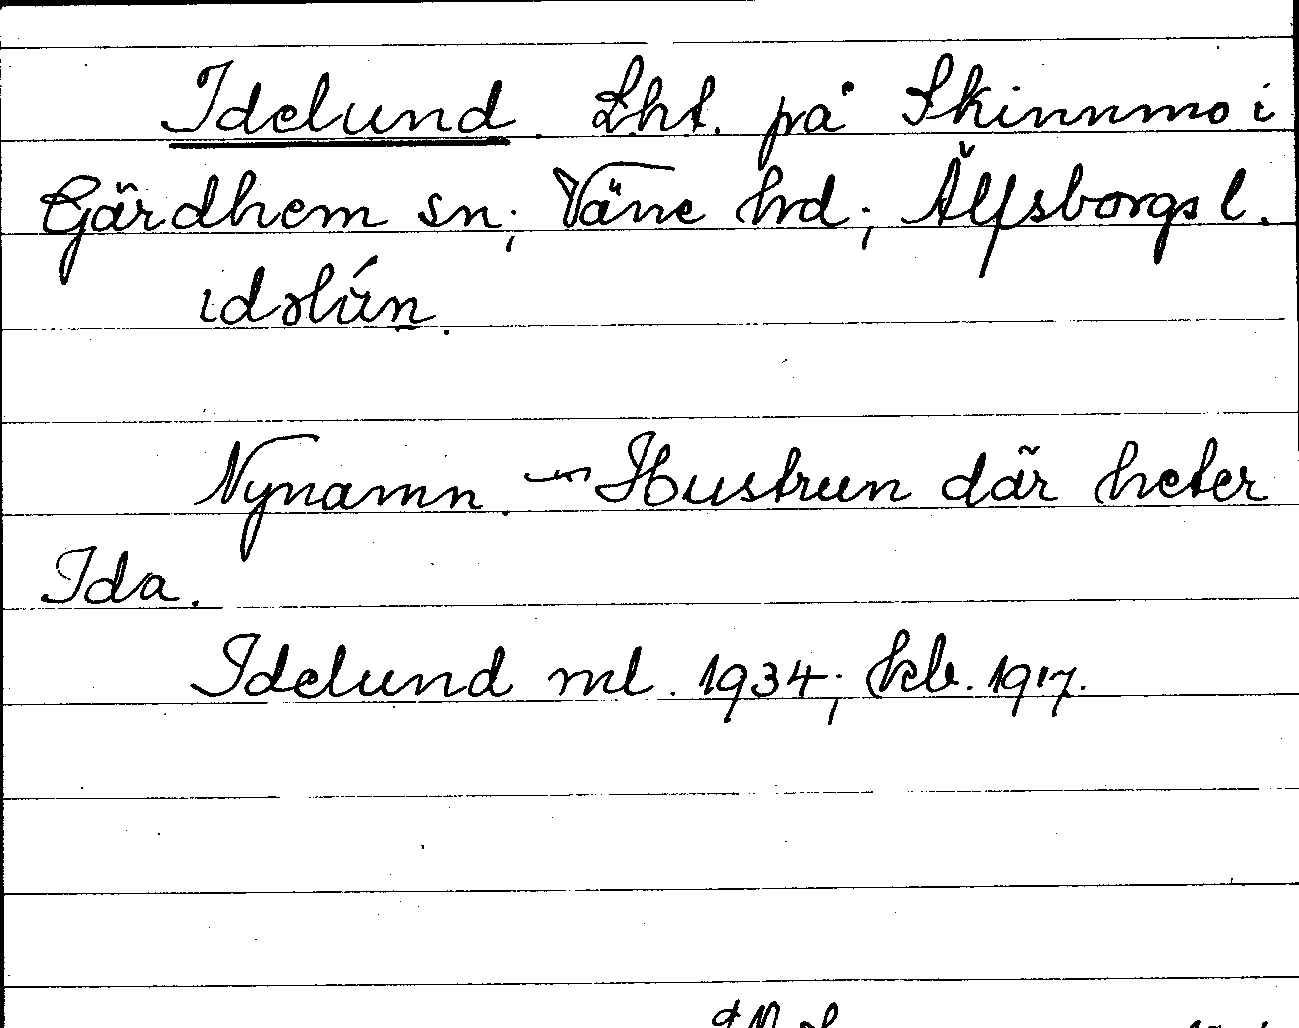 Idelund. Lht. på Skinnmo i
Gärdhem sn; Väne hd; Älfsborgs l.
ıdəlún.
Nynamn. — Hustrun där heter
Ida.
Idelund ml. 1934; kb. 1917.